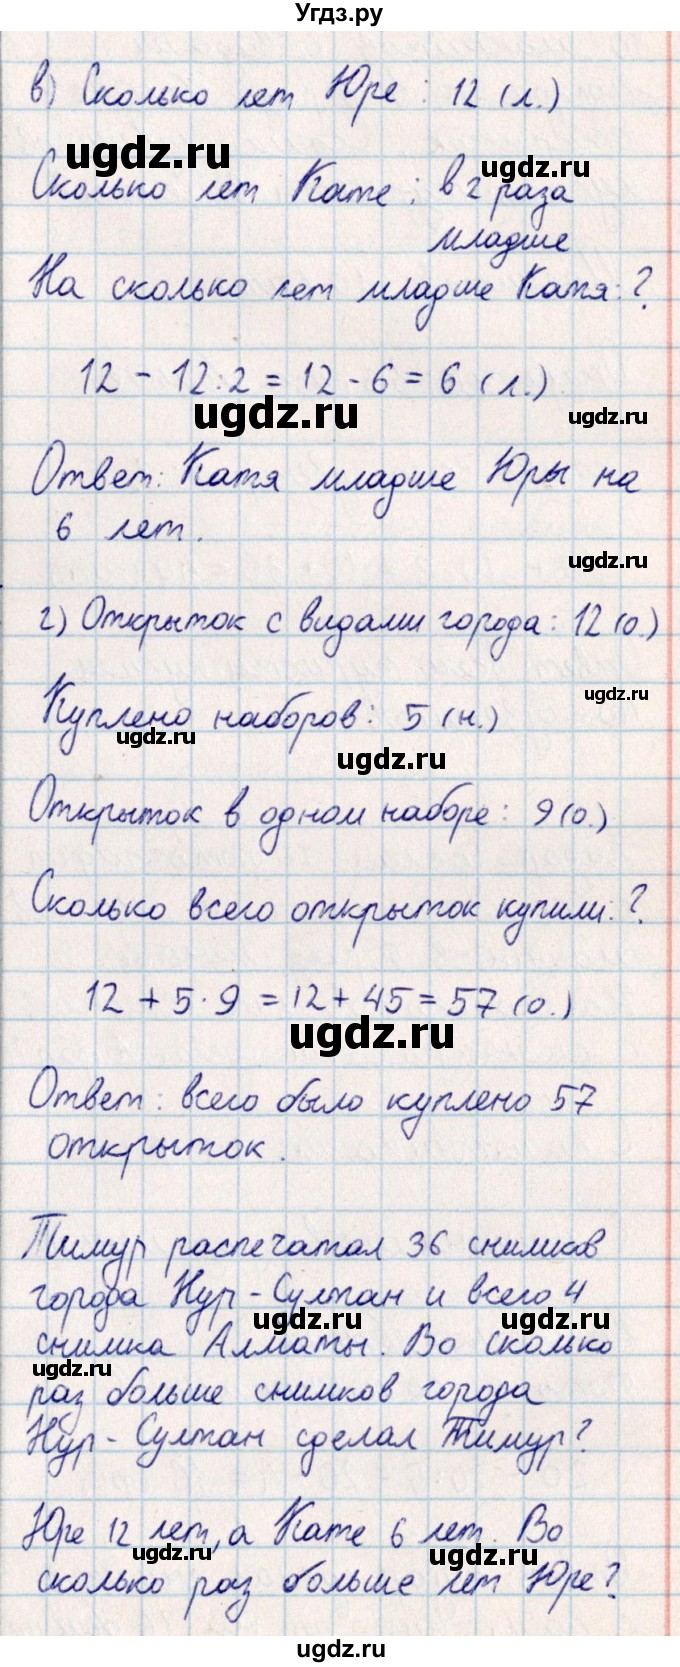 Угдз.ру
в) Сколько лет Юре: 12 (л.)
ugdz.ru
ugdz.ru
Сколько лет Кате: в 2 раза
младше
На сколько лет младше Катя: ?
12 - 12:2 = 12 - 6 = 6 (л.)
ugdz.ru
ugdz.ru
Ответ: Катя младше Юры на
6 лет.
ugdz.ru
г) Открыток с видами города: 12 (о.)
ugdz.ru
Куплено наборов: 5 (н.)
ugdz.ru
ugdz.ru
Открыток в одном наборе: 9 (о.)
Сколько всего открыток купили: ?
12 + 5·9 = 12 + 45 = 57 (о.)
ugdz.ru
Ответ: всего было куплено 57
открыток.
Тимур распечатал 36 снимков
города Нур-Султан и всего 4
ugdz.ru
ugdz.ru
снимка Алматы. Во сколько
ugdz.ru
раз больше снимков города
Нур-Султан сделал Тимур?
Юре 12 лет, а Кате 6 лет. Во
ugdz.ru
ugdz.ru
сколько раз больше лет Юре?
ugdz.ru